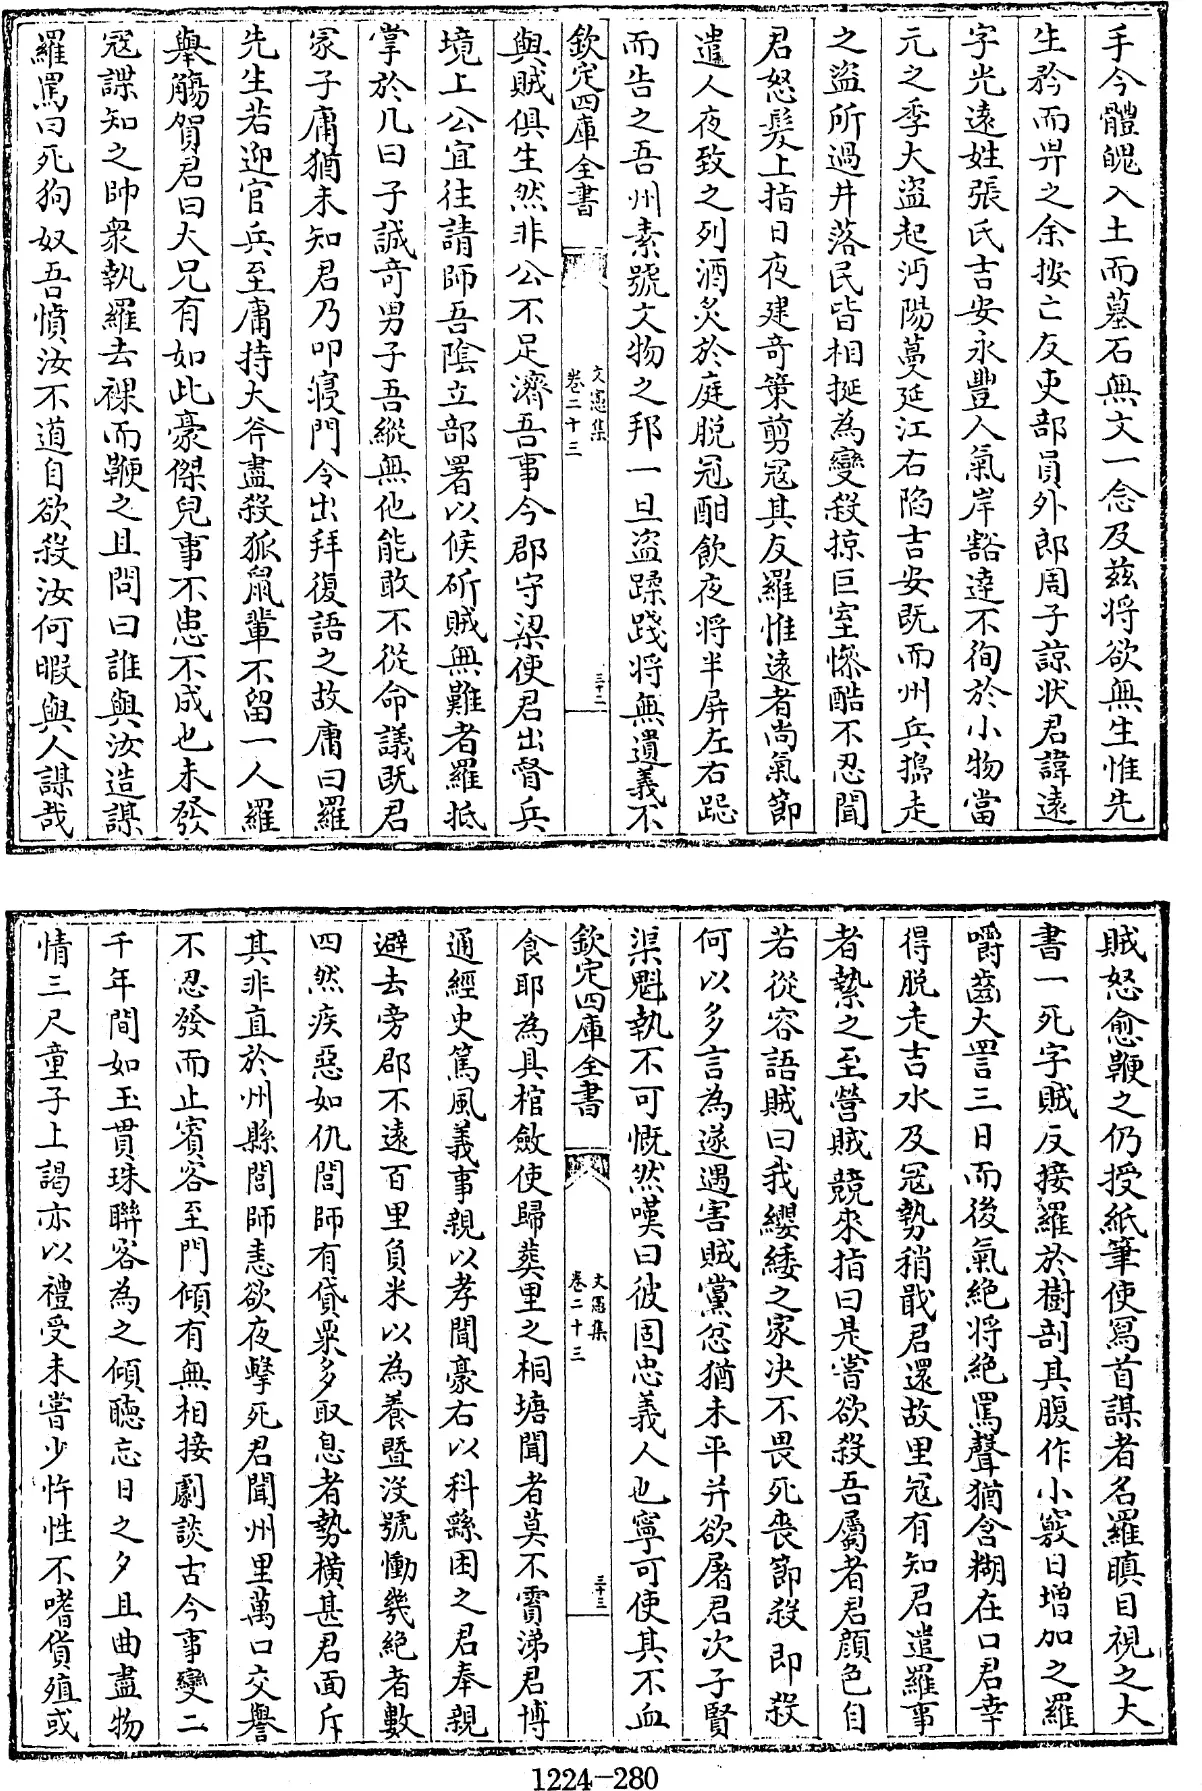 手今體魄入土而墓石無文一念及茲將欲無生惟先
生矜而畀之余按亡友吏部員外郎周子諒狀君諱遠
字光遠姓張氏吉安永豐人氣岸豁達不徇於小物當
元之季大盜起沔陽蔓延江右陷吉安既而州兵搗走
之盜所過井落民皆相挻為變殺掠巨室慘酷不忍聞
君怒髮上指日夜建竒策剪冦其友羅惟遠者尚氣節
遣人夜致之列酒炙於庭脱冠酣飲夜將半屏左右跽
而告之吾州素號文物之邦一旦盜蹂踐將無遺義不
欽定四庫全書
文憲集
卷二十三
三十二
與賊俱生然非公不足濟吾事今郡守梁使君出督兵
境上公宜往請師吾陰立部署以候斫賊無難者羅抵
掌於几曰子誠竒男子吾縱無他能敢不從命議既君
冡子庸猶未知君乃叩寢門令出拜復語之故庸曰羅
先生若迎官兵至庸持大斧盡殺狐鼠輩不留一人羅
舉觴賀君曰大兄有如此豪傑兒事不患不成也未發
冦諜知之帥衆執羅去裸而鞭之且問曰誰與汝造謀
羅罵曰死狗奴吾憤汝不道自欲殺汝何暇與人謀哉
賊怒愈鞭之仍授紙筆使寫首謀者名羅瞋目視之大
書一死字賊反接羅於樹剖其腹作小竅日增加之羅
嚼齒大詈三日而後氣絶將絶罵聲猶含糊在口君幸
得脱走吉水及冦勢稍戢君還故里冦有知君遣羅事
者縶之至營賊競來指曰是嘗欲殺吾屬者君顔色自
若從容語賊曰我纓緌之家决不畏死喪節殺即殺
何以多言為遂遇害賊黨忿猶未平并欲屠君次子賢
渠魁執不可慨然嘆曰彼固忠義人也寧可使其不血
欽定四庫全書
文憲集
卷二十三
三十三
食耶為具棺斂使歸葬里之桐塘聞者莫不霣涕君博
通經史篤風義事親以孝聞豪右以科繇困之君奉親
避去旁郡不遠百里負米以為養暨沒號慟幾絶者數
四然疾惡如仇閭師有貸粟多取息者勢横甚君面斥
其非直於州縣閭師恚欲夜擊死君聞州里萬口交譽
不忍發而止賓客至門傾有無相接劇談古今事變二
千年間如玉貫珠聯客為之傾聽忘日之夕且曲盡物
情三尺童子上謁亦以禮受未嘗少忤性不嗜貨殖或
1224-280